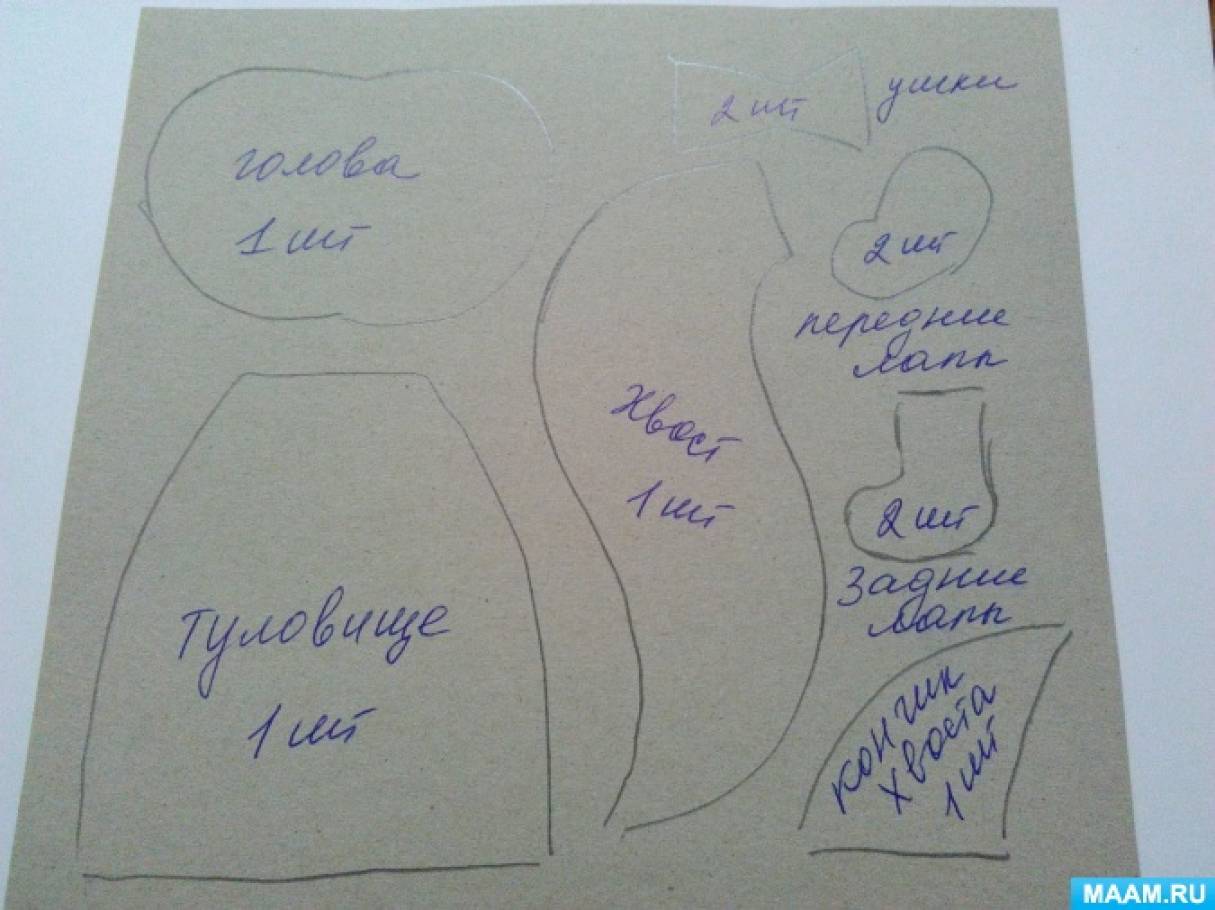 голова
1 шт
2 шт
ушки
2 шт
передние
лапы
Хвост
1 шт
2 шт
Задние
лапы
Туловище
1 шт
кончик
хвоста
1 шт
MAAM.RU